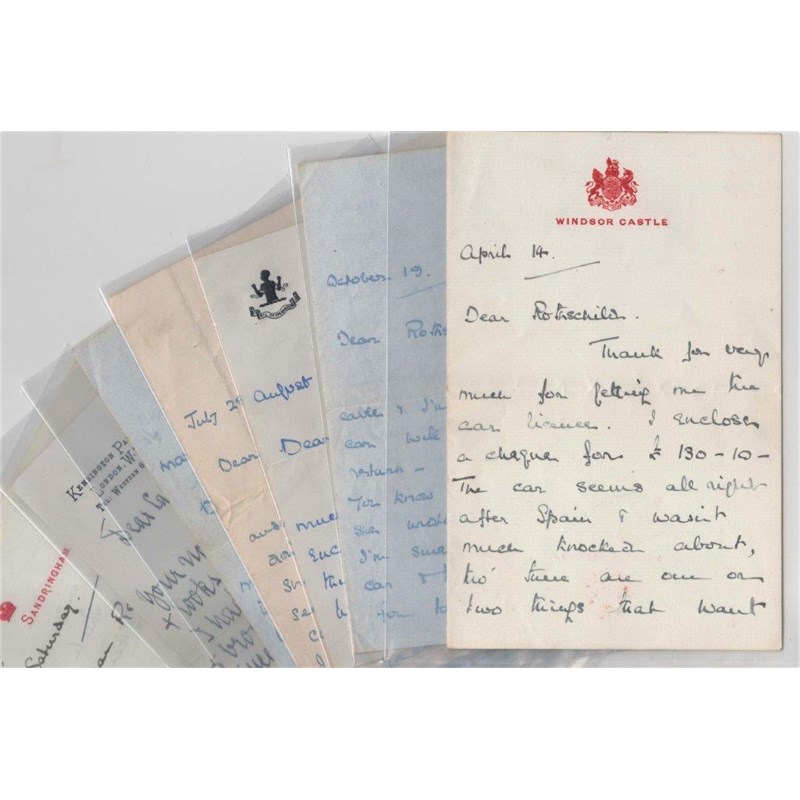 WINDSOR CASTLE
April 14.
Dear Rothschild.
Thank you very
much for getting me the
car licence. I enclose
a cheque for £ 130-10-
The car seems all right
after Spain & wasn't
much knocked about,
tho' there are one or
two things that want
October 19.
Dear Roths
cable & I'm
car will
return –
You know
She wrote
I'm sure
car
for
August
Dear
July 2
Dear
much
enc
KENSINGTON PA
LONDON. W
TEL. WESTERN
Dear
your
+ looks
SANDRINGHAM
Saturday.